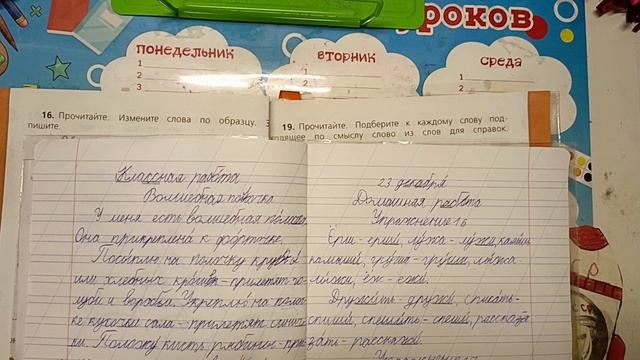 уроков
понедельник
вторник
среда
1
2
3
1
2
1
2
16. Прочитайте. Измените слова по образцу. З
пишите.
19. Прочитайте. Подберите к каждому слову под-
ходящее по смыслу слово из слов для справок.
Классная работа
Волшебная палочка
У меня есть волшебная
Она прикреплена к форточке.
Посыплю на полочку
или хлебных крошек - прилетят го-
луби и воробьи. Укреплю на полоч-
ке кусочки сала - прилетят сини-
ки. Положу кисть рябины - при
23 декабря
Домашняя работа
Упражнение 16
Ёрш - ерши, лужа - лужи, камыш
камыши, груша - груши, лыжа -
лыжи, ёж - ежи.
Дружить - дружи, списать -
спиши, спешить - спеши, расска
зать - расскажи.
Упражнение